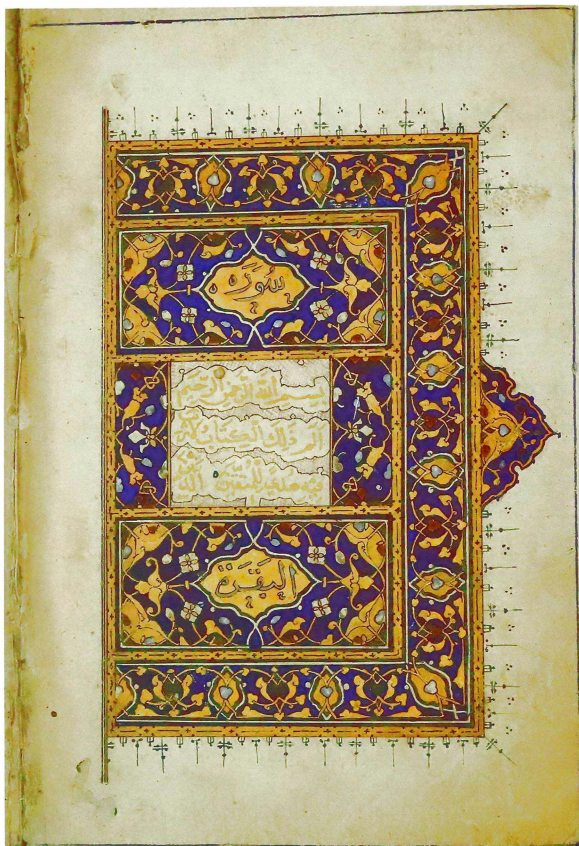 سورة
بسم الله الرحمن الرحيم
الم ذلك الكتاب لا ريب
فيه هدى للمتقين الذين
البقرة